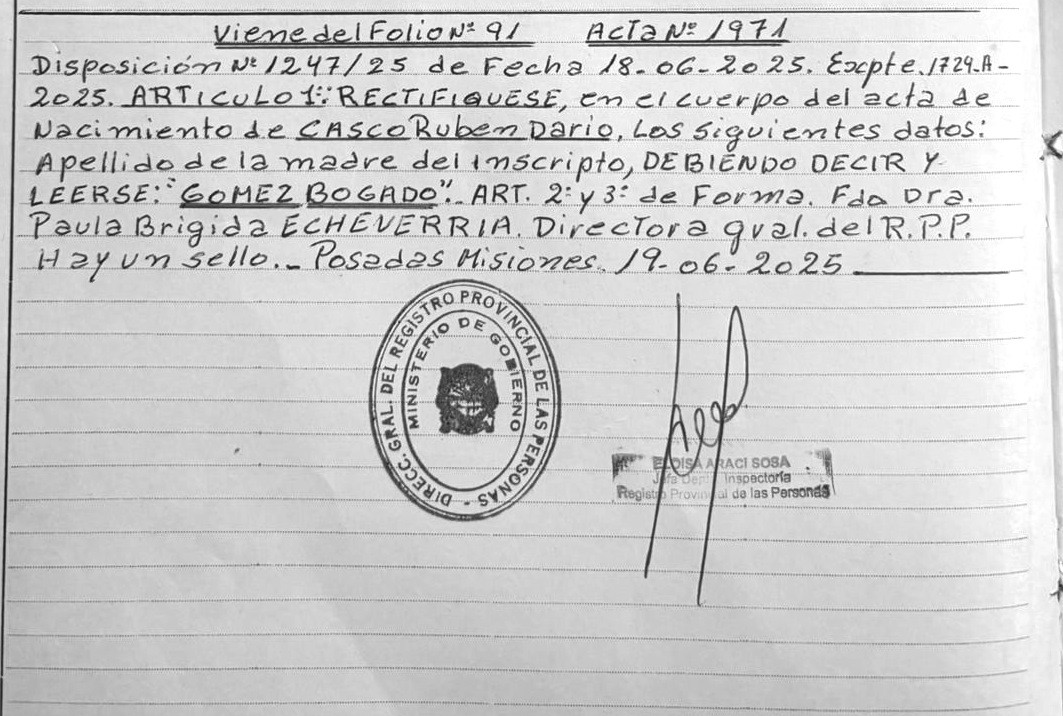 Viene del Folio Nº 91 Acta Nº 1971
Disposición Nº 1247/25 de Fecha 18-06-2025. Expte. 1724-A-
2025. ARTICULO 1º: RECTIFIQUESE, en el cuerpo del acta de
Nacimiento de CASCO Ruben Dario, Los siguientes datos:
Apellido de la madre del inscripto, DEBIENDO DECIR Y
LEERSE: "GOMEZ BOGADO". ART. 2º y 3º de Forma. Fdo Dra.
Paula Brigida ECHEVERRIA. Directora gral. del R.P.P.
Hay un sello._ Posadas Misiones. 19-06-2025
DIRECC. GRAL. DEL REGISTRO PROVINCIAL DE LAS PERSONAS -
MINISTERIO DE GOBIERNO
ELOISA ARACI SOSA
Jefa Dept. Inspectoría
Registro Provincial de las Personas